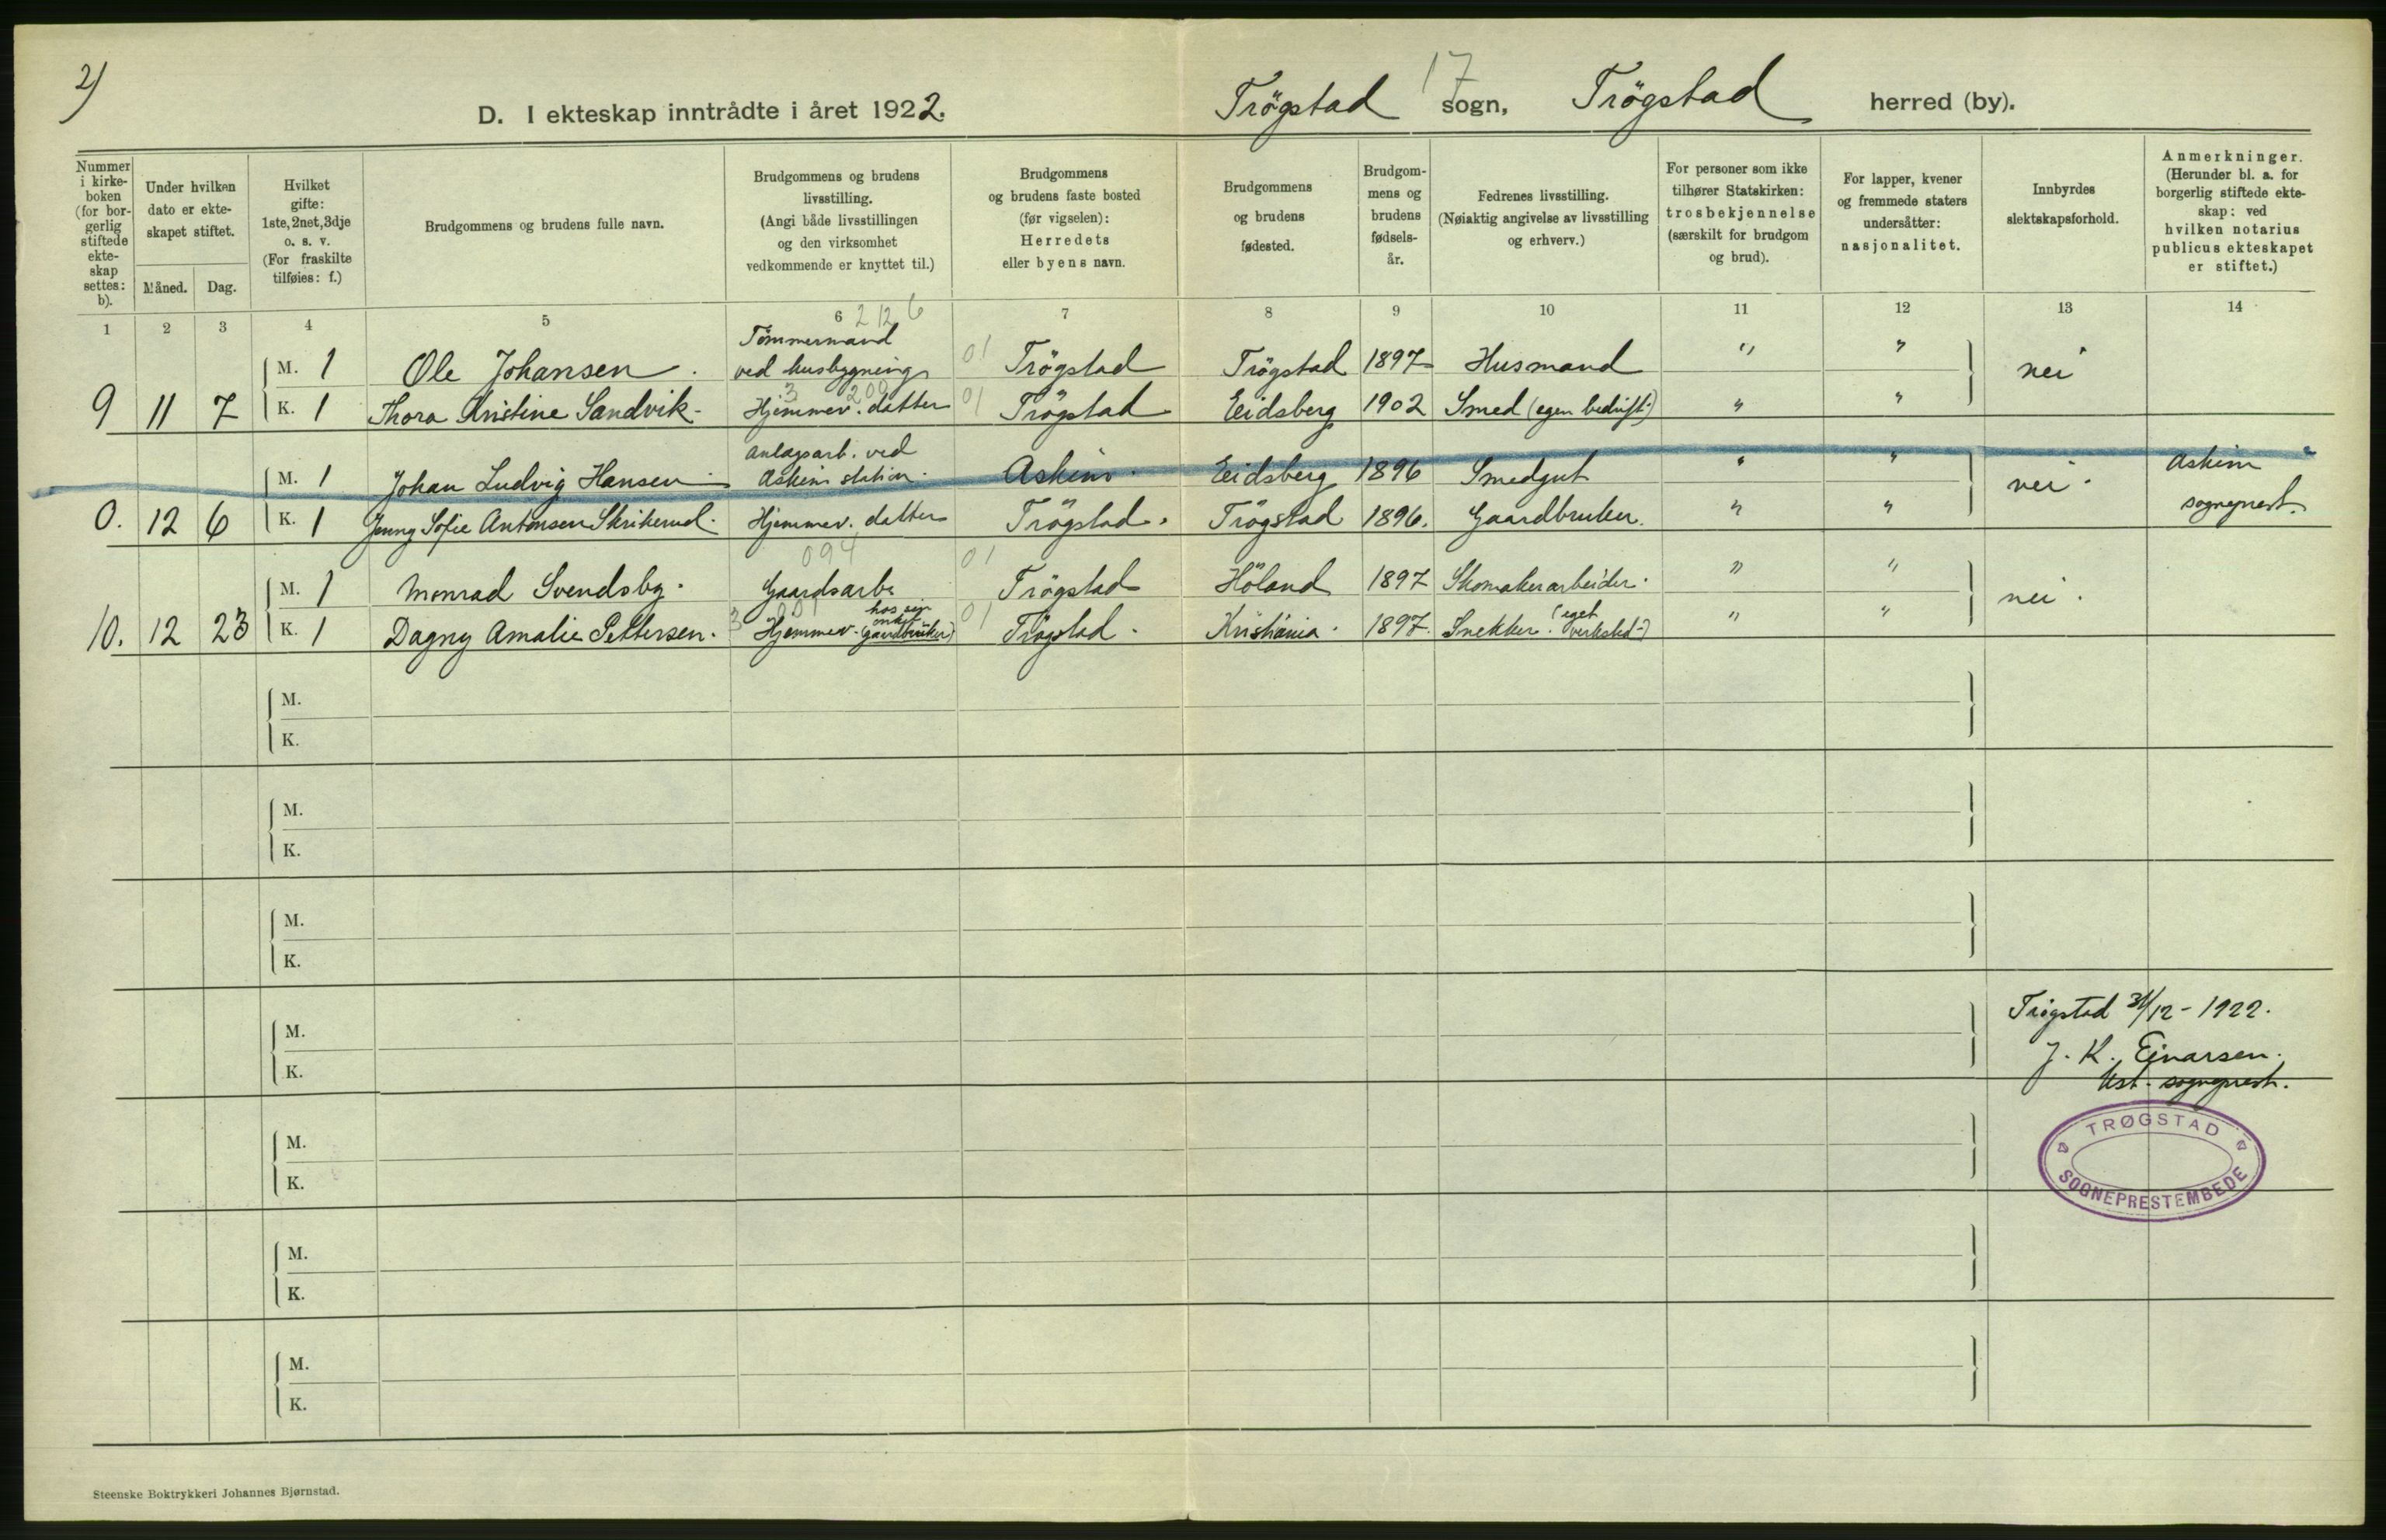 2)
D. I ekteskap inntrådte i året 1922.
Trögstad sogn, Trögstad herred (by).
17
Nummer i kirke- boken (for bor- gerlig stiftede ekte- skap settes: b).
Under hvilken dato er ekte- skapet stiftet.
Måned. Dag.
Hvilket gifte: 1ste, 2net, 3dje o. s. v. (For fraskilte tilføies: f.)
Brudgommens og brudens fulle navn.
Brudgommens og brudens livsstilling. (Angi både livsstillingen og den virksomhet vedkommende er knyttet til.)
Brudgommens og brudens faste bosted (før vigselen): Herredets eller byens navn.
Brudgommens og brudens fødested.
Brudgom- mens og brudens fødsels- år.
Fedrenes livsstilling. (Nøiaktig angivelse av livsstilling og erhverv.)
For personer som ikke tilhører Statskirken: trosbekjennelse (særskilt for brudgom og brud).
For lapper, kvener og fremmede staters undersåtter: nasjonalitet.
Innbyrdes slektskapsforhold.
Anmerkninger. (Herunder bl. a. for borgerlig stiftede ekte- skap: ved hvilken notarius publicus ekteskapet er stiftet.)
1 2 3 4 5 6 7 8 9 10 11 12 13 14
212 6
Tömmermand
M. 1 Ole Johansen. ved husbygning 01 Trögstad Trögstad 1897 Husmand " " nei
3 200
9 11 7 K. 1 Thora Kristine Sandvik. Hjemmev. datter 01 Trögstad Eidsberg 1902 Smed (egen bedrift.) " "
anlagsarb. ved
M. 1 Johan Ludvig Hansen Askim station. Askim. Eidsberg 1896 Smedgut " " nei. Askim
0. 12 6 K. 1 Jenny Sofie Antonsen Skrikerud. Hjemmev. datter Trögstad. Trögstad 1896. Gaardbruker. " " sogneprest.
094 01
M. 1 Monrad Svendsby. Gaardsarb. Trögstad Höland 1897 Skomakerarbeider. " " nei.
10. 12 23 K. 1 Dagny Amalie Pettersen. 3 Hjemmev. (hos sin gaardbruker) 01 Trögstad. Kristiania. 1897. Snekker. (eget verksted-) " "
M.
K.
M.
K.
M.
K.
Trögstad 31/12 - 1922.
M.
J. K. Ejnarsen.
K.
Kst. sogneprest.
TRØGSTAD
SOGNEPRESTEMBEDE
M.
K.
M.
K.
M.
K.
Steenske Boktrykkeri Johannes Bjørnstad.